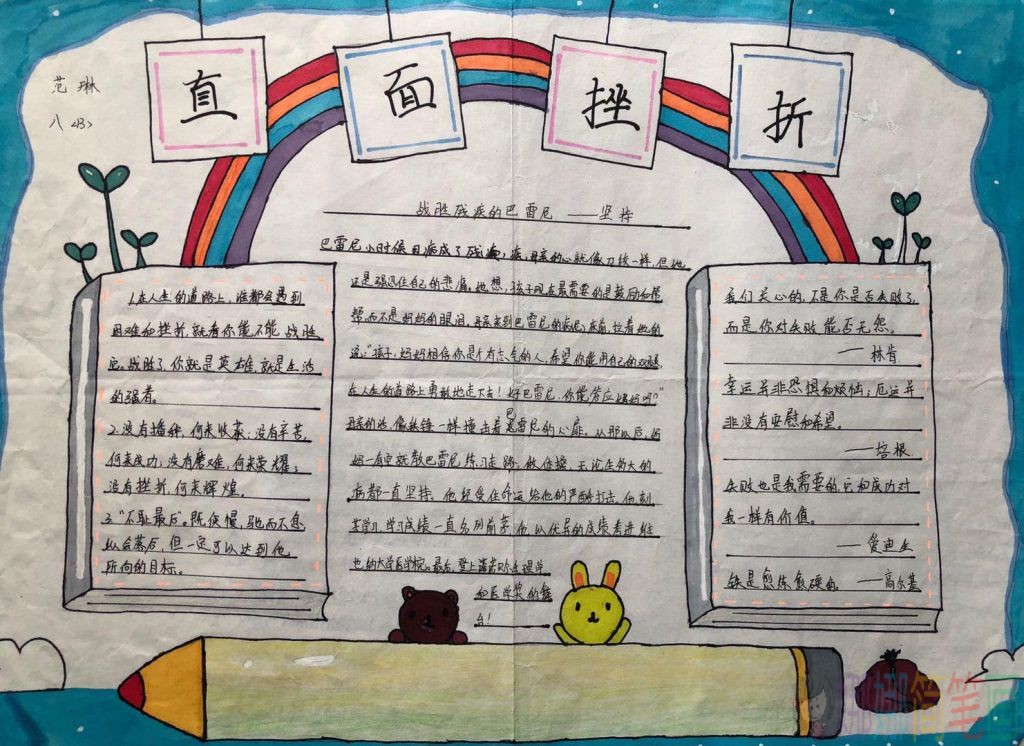 范琳
八<13>
直面挫折
战胜残疾的巴雷尼 ——坚持
巴雷尼小时候因病成了残疾,母亲的心就像刀绞一样,但她
还是强忍住自己的悲痛。她想,孩子现在最需要的是鼓励和帮
帮,而不是妈妈的眼泪。母亲来到巴雷尼的病床前,拉着他的
说:“孩子,妈妈相信你是个有志气的人,希望你能用自己的双腿,
在人生的道路上勇敢地走下去!好巴雷尼,你能答应妈妈吗?”
母亲的话,像铁锤一样撞击着巴雷尼的心扉。从那以后,妈
妈一有空就教巴雷尼练习走路,做体操,
他经受住命运给他的严酷打击。他刻
苦学习,学习成绩一直名列前茅。他以优异的成绩考进维
也纳大学医学院。最后,登上诺贝尔生理学
和医学奖的舞
台!
1.在人生的道路上,谁都会遇到
困难和挫折,就看你能不能战胜
它。战胜了,你就是英雄,就是生活
的强者。
2.没有播种,何来收获;没有辛苦,
何来成功;没有磨难,何来荣耀;
没有挫折,何来辉煌。
3.“不耻最后”。既使慢,驰而不息
纵会落后,但一定可以达到他
所向的目标。
我们关心的,不是你是否失败了,
而是你对失败能否无怨。
——林肯
幸运并非恐惧和烦恼;厄运并
非没有安慰和希望。
——培根
失败也是我需要的,它和成功对
我一样有价值。
——爱迪生
铁是愈炼愈硬的。——高尔基
简笔